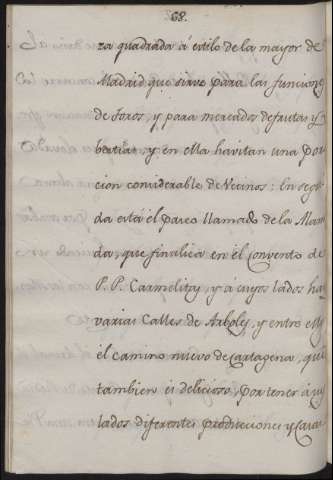 68.
za quadrada á estilo de la mayor de
Madrid, que sirve para las funciones
de Toros, y para mercados de frutas y
bestias, y en ella havitan una por
cion considerable de Vecinos: En segui
da está el paseo llamado de la Alame
da, que finaliza en el Convento de
P. P. Carmelitas, y á cuyos lados hay
varias Calles de Arboles, y entre ellas
el camino nuevo de Cartagena, que
tambien es delicioso, por tener á sus
lados diferentes producciones y Casas